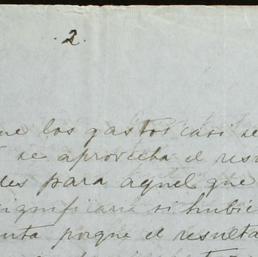 .2.
los gastos casi se
se aprovecha el res
des para aquel que
significare si hubie
porque el resulta